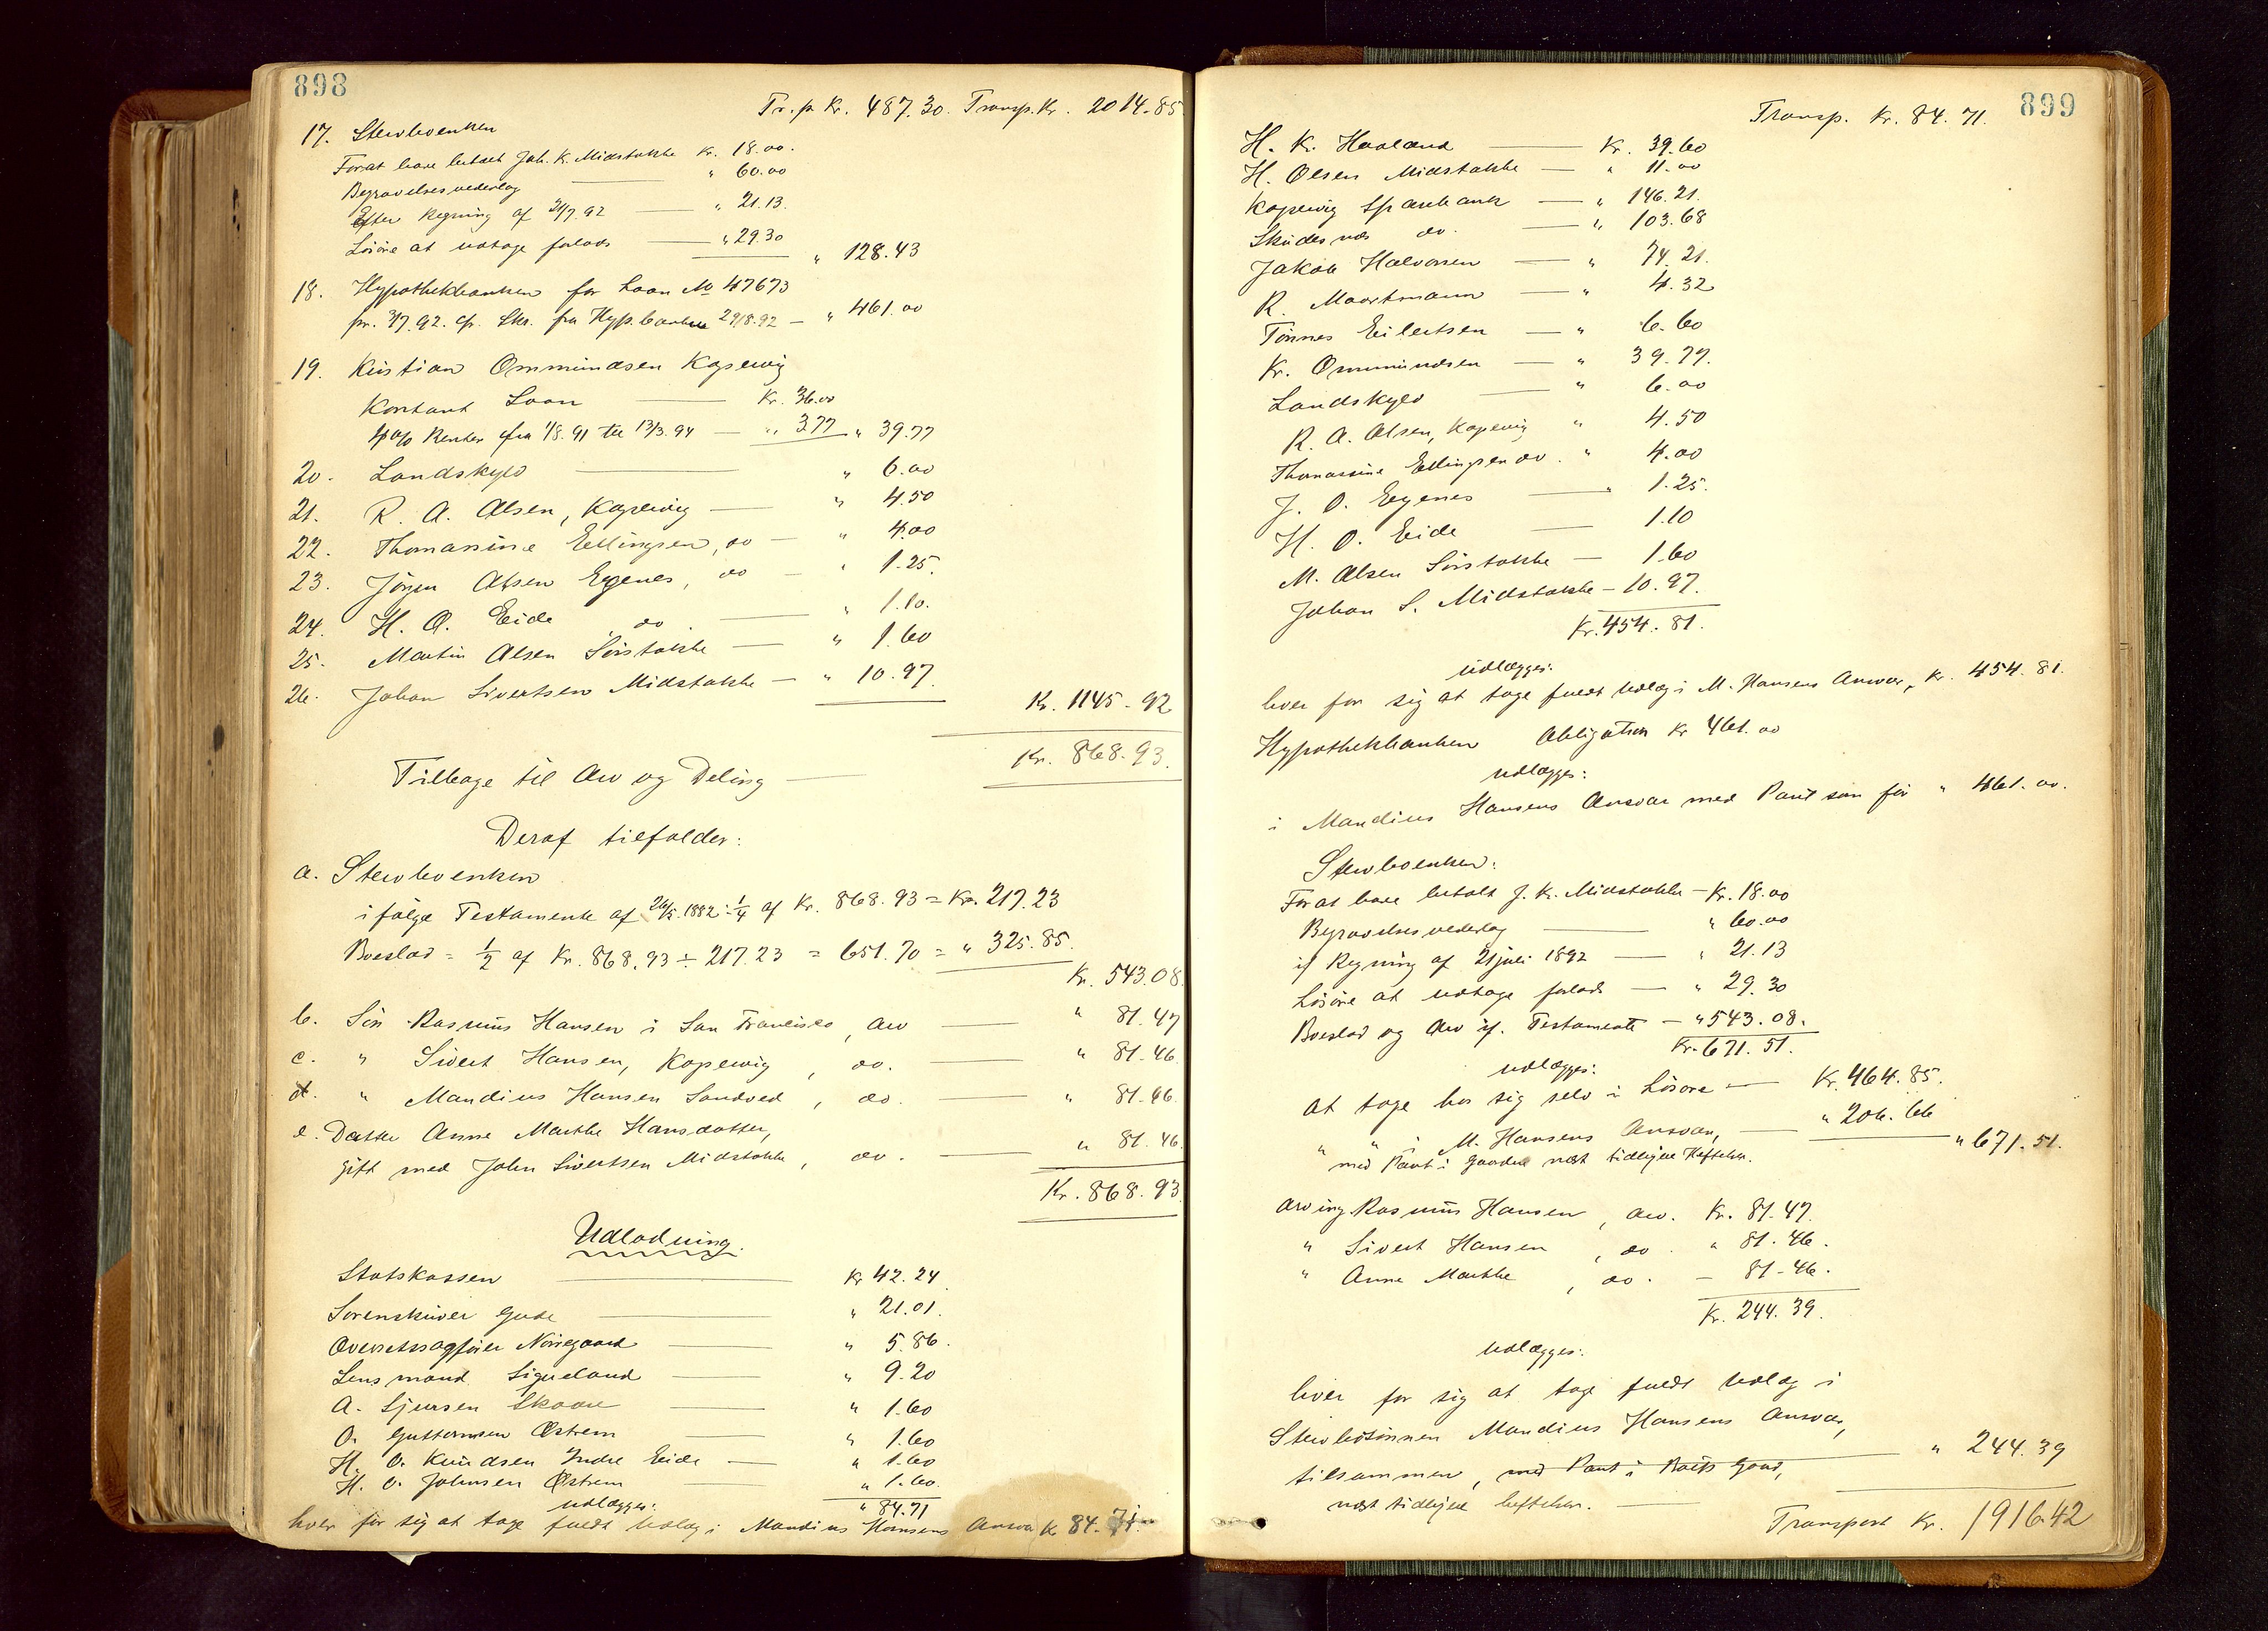 898
Tr.p Kr. 487.30. Transp. Kr. 2014.85
17. Stervboenken
For at have betalt Joh. K. Midstokke Kr. 18.00.
Begravelsesvederlag — " 60.00
Efter Regning af 21/7.92 — " 21.13.
Løsøre at udtage forlods — " 29.30
" 128.43
18. Hypothekbanken for Laan No 47673
pr. 3/7.92. cfr. Skr. fra Hyp.banken 29/8.92 — " 461.00
19. Kristian Ommundsen Kopervig
Kontant Laan — Kr. 36.00
4 o/o Renter fra 1/8.91 til 13/3.94 — " 3.77 " 39.77
20. Landskyld — " 6.00
21. R. A. Olsen, Kopervig — " 4.50
22. Thomassine Ellingsen, do — " 4.00
23. Jørgen Olsen Eyenes, do — " 1.25.
24. H. O. Eide, do. — " 1.10.
25. Martin Olsen Sørstokke — " 1.60
26. Johan Sivertsen Midstokke — " 10.97.
Kr. 1145.92
Tilbage til Arv og Deling — Kr. 868.93.
Deraf tilfalder:
a. Stervboenken
ifølge Testamente af 26/5.1882: 1/4 af Kr. 868.93 = Kr. 217.23
Boeslod = 1/2 af Kr. 868.93 ÷ 217.23 = 651.70 = " 325.85.
Kr. 543.08.
b. Søn Rasmus Hansen i San Francisco, Arv — " 81.47
c. " Sivert Hansen, Kopervig, do. — " 81.46
d. " Mandius Hansen Sandved, do. — " 81.46.
e. Datter Anne Marthe Hansdatter,
gift med John Sivertsen Midstokke, do. — " 81.46.
Kr. 868.93
Udlodning.
Statskassen — Kr 42.24
Sorenskriver Gude — " 21.01.
Overretssagfører Nørregaard — " 5.86.
Lensmand Liqueland — " 9.20
A. Sjursen Skaare — " 1.60
O. Guttormsen Østrem — " 1.60
H. O. Knudsen Indre Eide — " 1.60
H. O. Johnsen Østrem — " 1.60.
" 84.71
udlægges:
hver for sig at tage fuldt Udlæg i Mandius Hansens Ansvar Kr 84.71.
899
Transp. Kr. 84.71.
H. K. Haaland — Kr. 39.60
H. Olsen Midstokke — " 11.00
Kopervig Sparebank — " 146.21.
Skudesnæs do. — " 103.68
Jakob Halvorsen — " 74.21.
R. Maartmann — " 4.32
Tønnes Eilertsen — " 6.60
Kr. Ommundsen — " 39.77.
Landskyld — " 6.00
R. A. Olsen, Kopervig " 4.50
Thomassine Ellingsen do. " 4.00
J. O. Eyenes — " 1.25.
H. O. Eide — 1.10
M. Olsen Sørstokke — 1.60
Johan S. Midstokke — 10.97.
Kr. 454.81.
udlægges:
hver for sig at tage fuldt Udlæg i M. Hansens Ansvar, Kr. 454.81.
Hypothekbanken Obligation Kr 461.00
udlægges:
i Mandius Hansens Ansvar med Pant som før " 461.00.
Stervboenken:
For at have betalt J. K. Midstokke — Kr. 18.00
Begravelsesvederlag — " 60.00
if Regning af 21 juli 1892 — " 21.13
Løsøre at udtage forlods — " 29.30
Boeslod og Arv if. Testamente — " 543.08.
Kr. 671.51.
udlægges:
at tage hos sig selv i Løsøre — Kr. 464.85.
" " i M. Hansens Ansvar, — " 206.66
" med Pant i Gaarden næst tidligere Heftelser. " 671.51.
Arving Rasmus Hansen, Arv. Kr. 81.47.
" Sivert Hansen, do. " 81.46.
" Anne Marthe, do. — 81.46.
Kr. 244.39.
udlægges:
hver for sig at tage fuldt Udlæg i
Stervbosønnen Mandius Hansens Ansvar,
tilsammen, med Pant i Boets Gaard, " 244.39
næst tidligere heftelser. —
Transport Kr. 1916.42